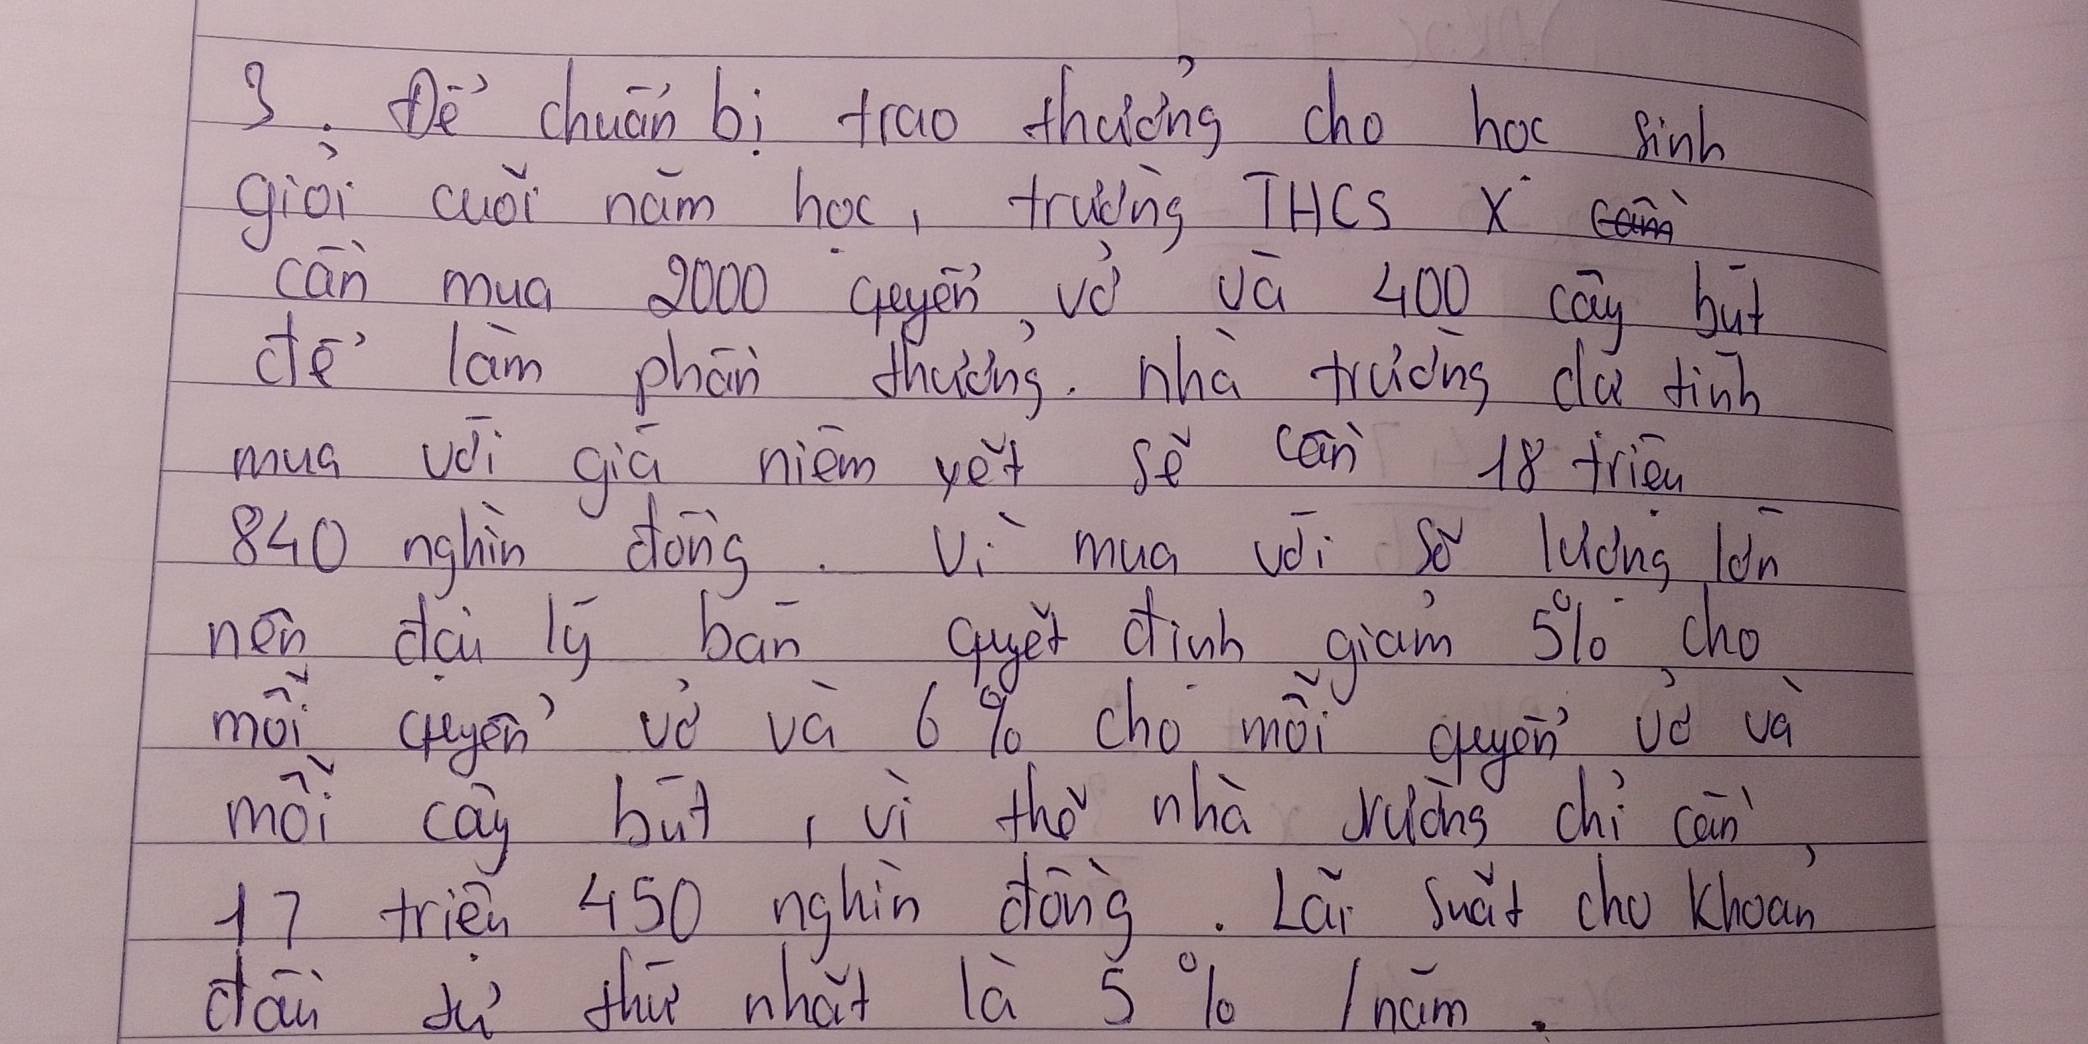 3. Để chuẩn bị trao thưởng cho học sinh
giỏi cuối năm học, trường THCS X
cần mua 2000 quyển vở và 400 cây bút
để làm phần thưởng. nhà trường dự tính
mua với giá niêm yết sẽ cần 18 triệu
840 nghìn đồng. Vì mua với số lượng lớn
nên đại lý bán quyết định giảm 5% cho
mỗi quyển vở và 6% cho mỗi quyển vở và
mỗi cây bút, vì thế nhà trường chỉ cần
17 triệu 450 nghìn đồng. Lãi suất cho khoản
đầu tư thứ nhất là 5% / năm.